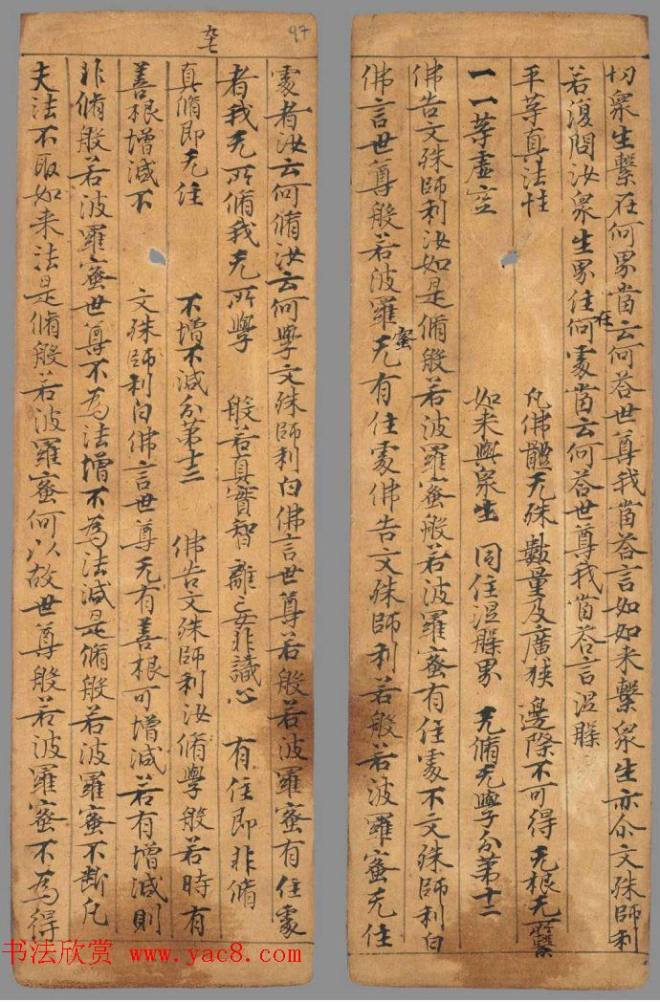 切衆生繫在何界當云何荅世尊我當荅言如如来繫衆生亦尒文殊師利
若復問汝衆生界住在何處當云何荅世尊我當荅言涅槃
平等真法性 凡佛體无殊數量及廣狹邊際不可得 无根无所繫
一一等虛空 如来與衆生 同住涅槃界 无脩无學分第十二
佛告文殊師利汝如是脩般若波羅蜜般若波羅蜜有住處不文殊師利白
佛言世尊般若波羅蜜无有住處佛告文殊師利若般若波羅蜜无住
97
九七
處者汝云何脩汝云何學文殊師利白佛言世尊若般若波羅蜜有住處
者我无所脩我无所學 般若真實智 離妄非識心 有住即非脩
真脩即无住 不增不減分第十三 佛告文殊師利汝脩學般若時有
善根增減不 文殊師利白佛言世尊无有善根可增減若有增減則
非脩般若波羅蜜世尊不為法增不為法減是脩般若波羅蜜不斷凡
夫法不取如来法是脩般若波羅蜜何以故世尊般若波羅蜜不為得
书法欣赏 www.yac8.com